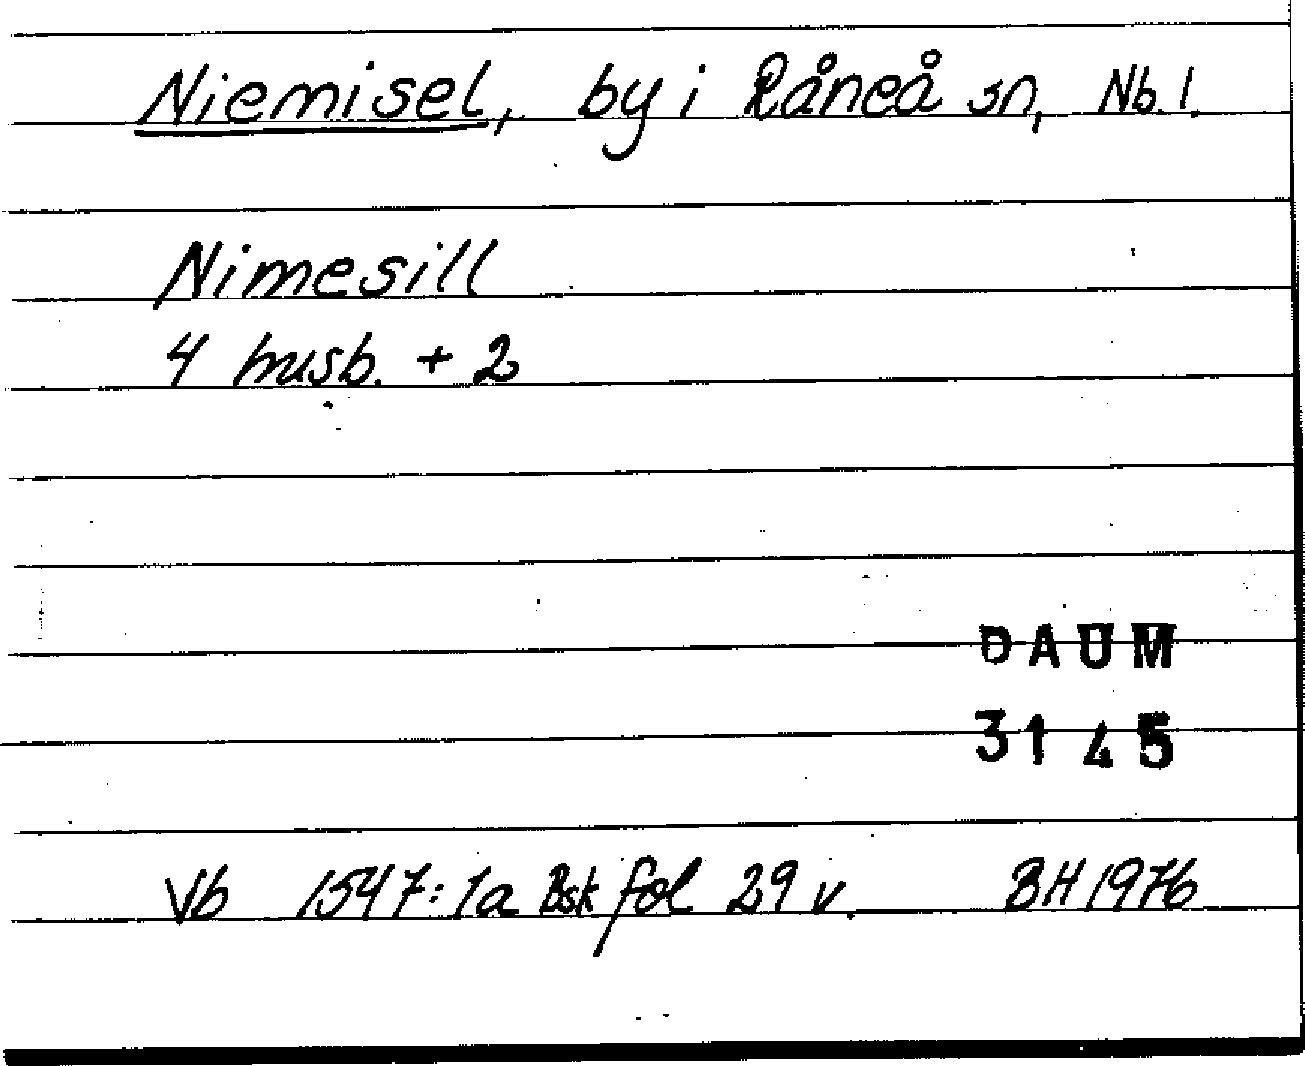 Niemisel, by i Råneå sn, Nb. l.
Nimesill
4 husb. + 2
DAUM
3145
Vb 1547:1a Bsk fol 29 v. BH 1976